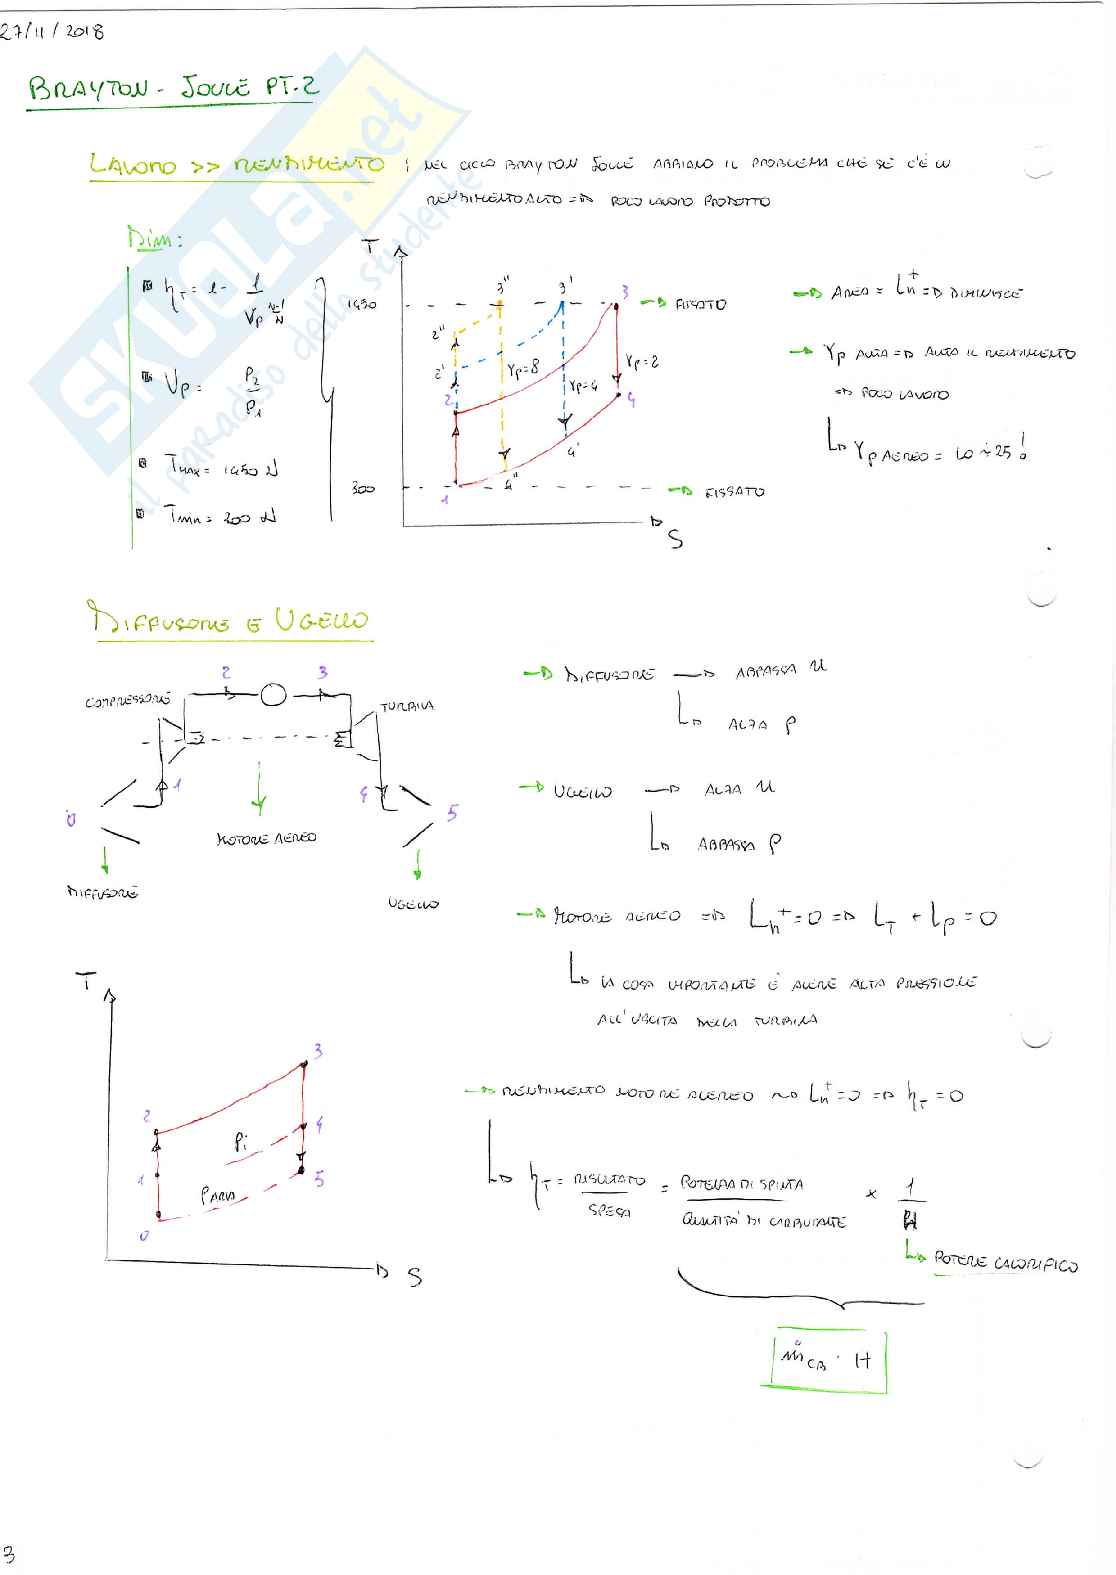 27/11/2018
BRAYTON - JOULE PT.2
LAVORO >> RENDIMENTO | NEL CICLO BRAYTON JOULE ABBIAMO IL PROBLEMA CHE SE C'È UN
RENDIMENTO ALTO => POCO LAVORO PRODOTTO
Dim:
η_T = 1 -
1
V_p
V_p =
P2
P1
Tmax = 1450 K
Tmin = 200 K
T
1450
300
3''
3'
3
2''
2'
2
1
4''
4'
4
Yp=8
Yp=4
Yp=2
FISSATO
FISSATO
S
AREA = Ln+ => DIMINUISCE
Yp ALTA => ALTO IL RENDIMENTO
=> POCO LAVORO
Yp AEREO = 20 ÷ 25!
DIFFUSORE E UGELLO
COMPRESSORE
2
3
TURBINA
1
4
0
5
MOTORE AEREO
DIFFUSORE
UGELLO
DIFFUSORE → ABBASSA u
ALZA P
UGELLO → ALZA u
ABBASSA P
MOTORE AEREO => Ln+ = 0 => LT + Lp = 0
LA COSA IMPORTANTE È AVERE ALTA PRESSIONE
ALL'USCITA DELLA TURBINA
T
3
2
4
Pi
1
5
PARIA
0
S
RENDIMENTO MOTORE AEREO ~> Ln+ = 0 => η_T = 0
η_T = RISULTATO = POTENZA DI SPINTA × 1
SPESA QUANTITÀ DI CARBURANTE H
POTERE CALORIFICO
ṁCB · H
3
SKUOLA.net
il paradiso dello studente